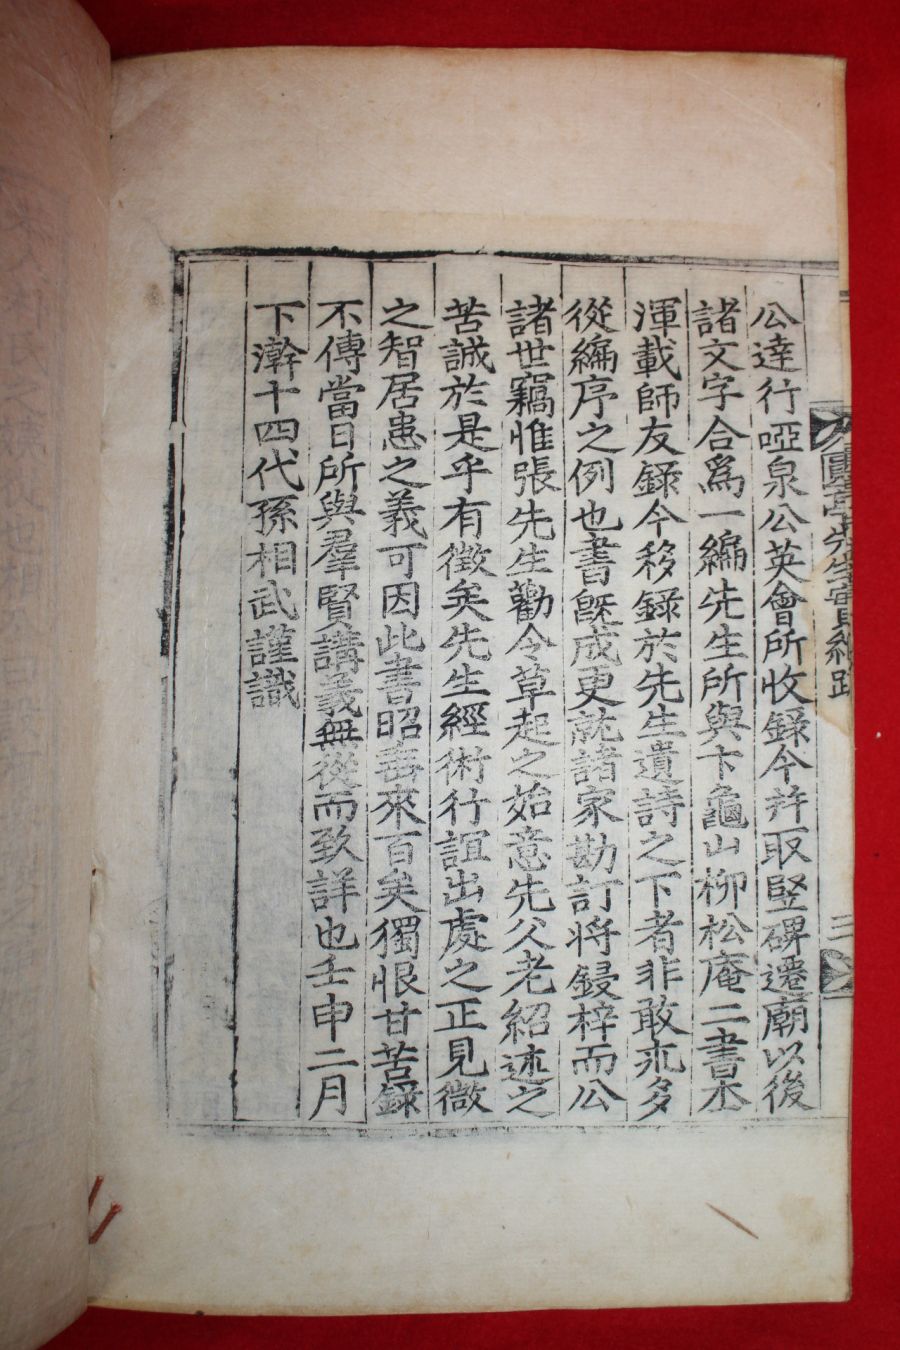 公達行啞泉公英會所收錄今幷取竪碑遷廟以後
諸文字合爲一編先生所與卞龜山柳松庵二書本
渾載師友錄今移錄於先生遺詩之下者非敢求多
從編序之例也書旣成更就諸家勘訂將鋟梓而公
諸世竊惟張先生勸令草起之始意先父老紹述之
苦誠於是乎有徵矣先生經術行誼出處之正見微
之智居患之義可因此書昭垂來百矣獨恨甘苦錄
不傳當日所與羣賢講義無從而致詳也壬申二月
下澣十四代孫相武謹識
亭先生實紀 跋 三